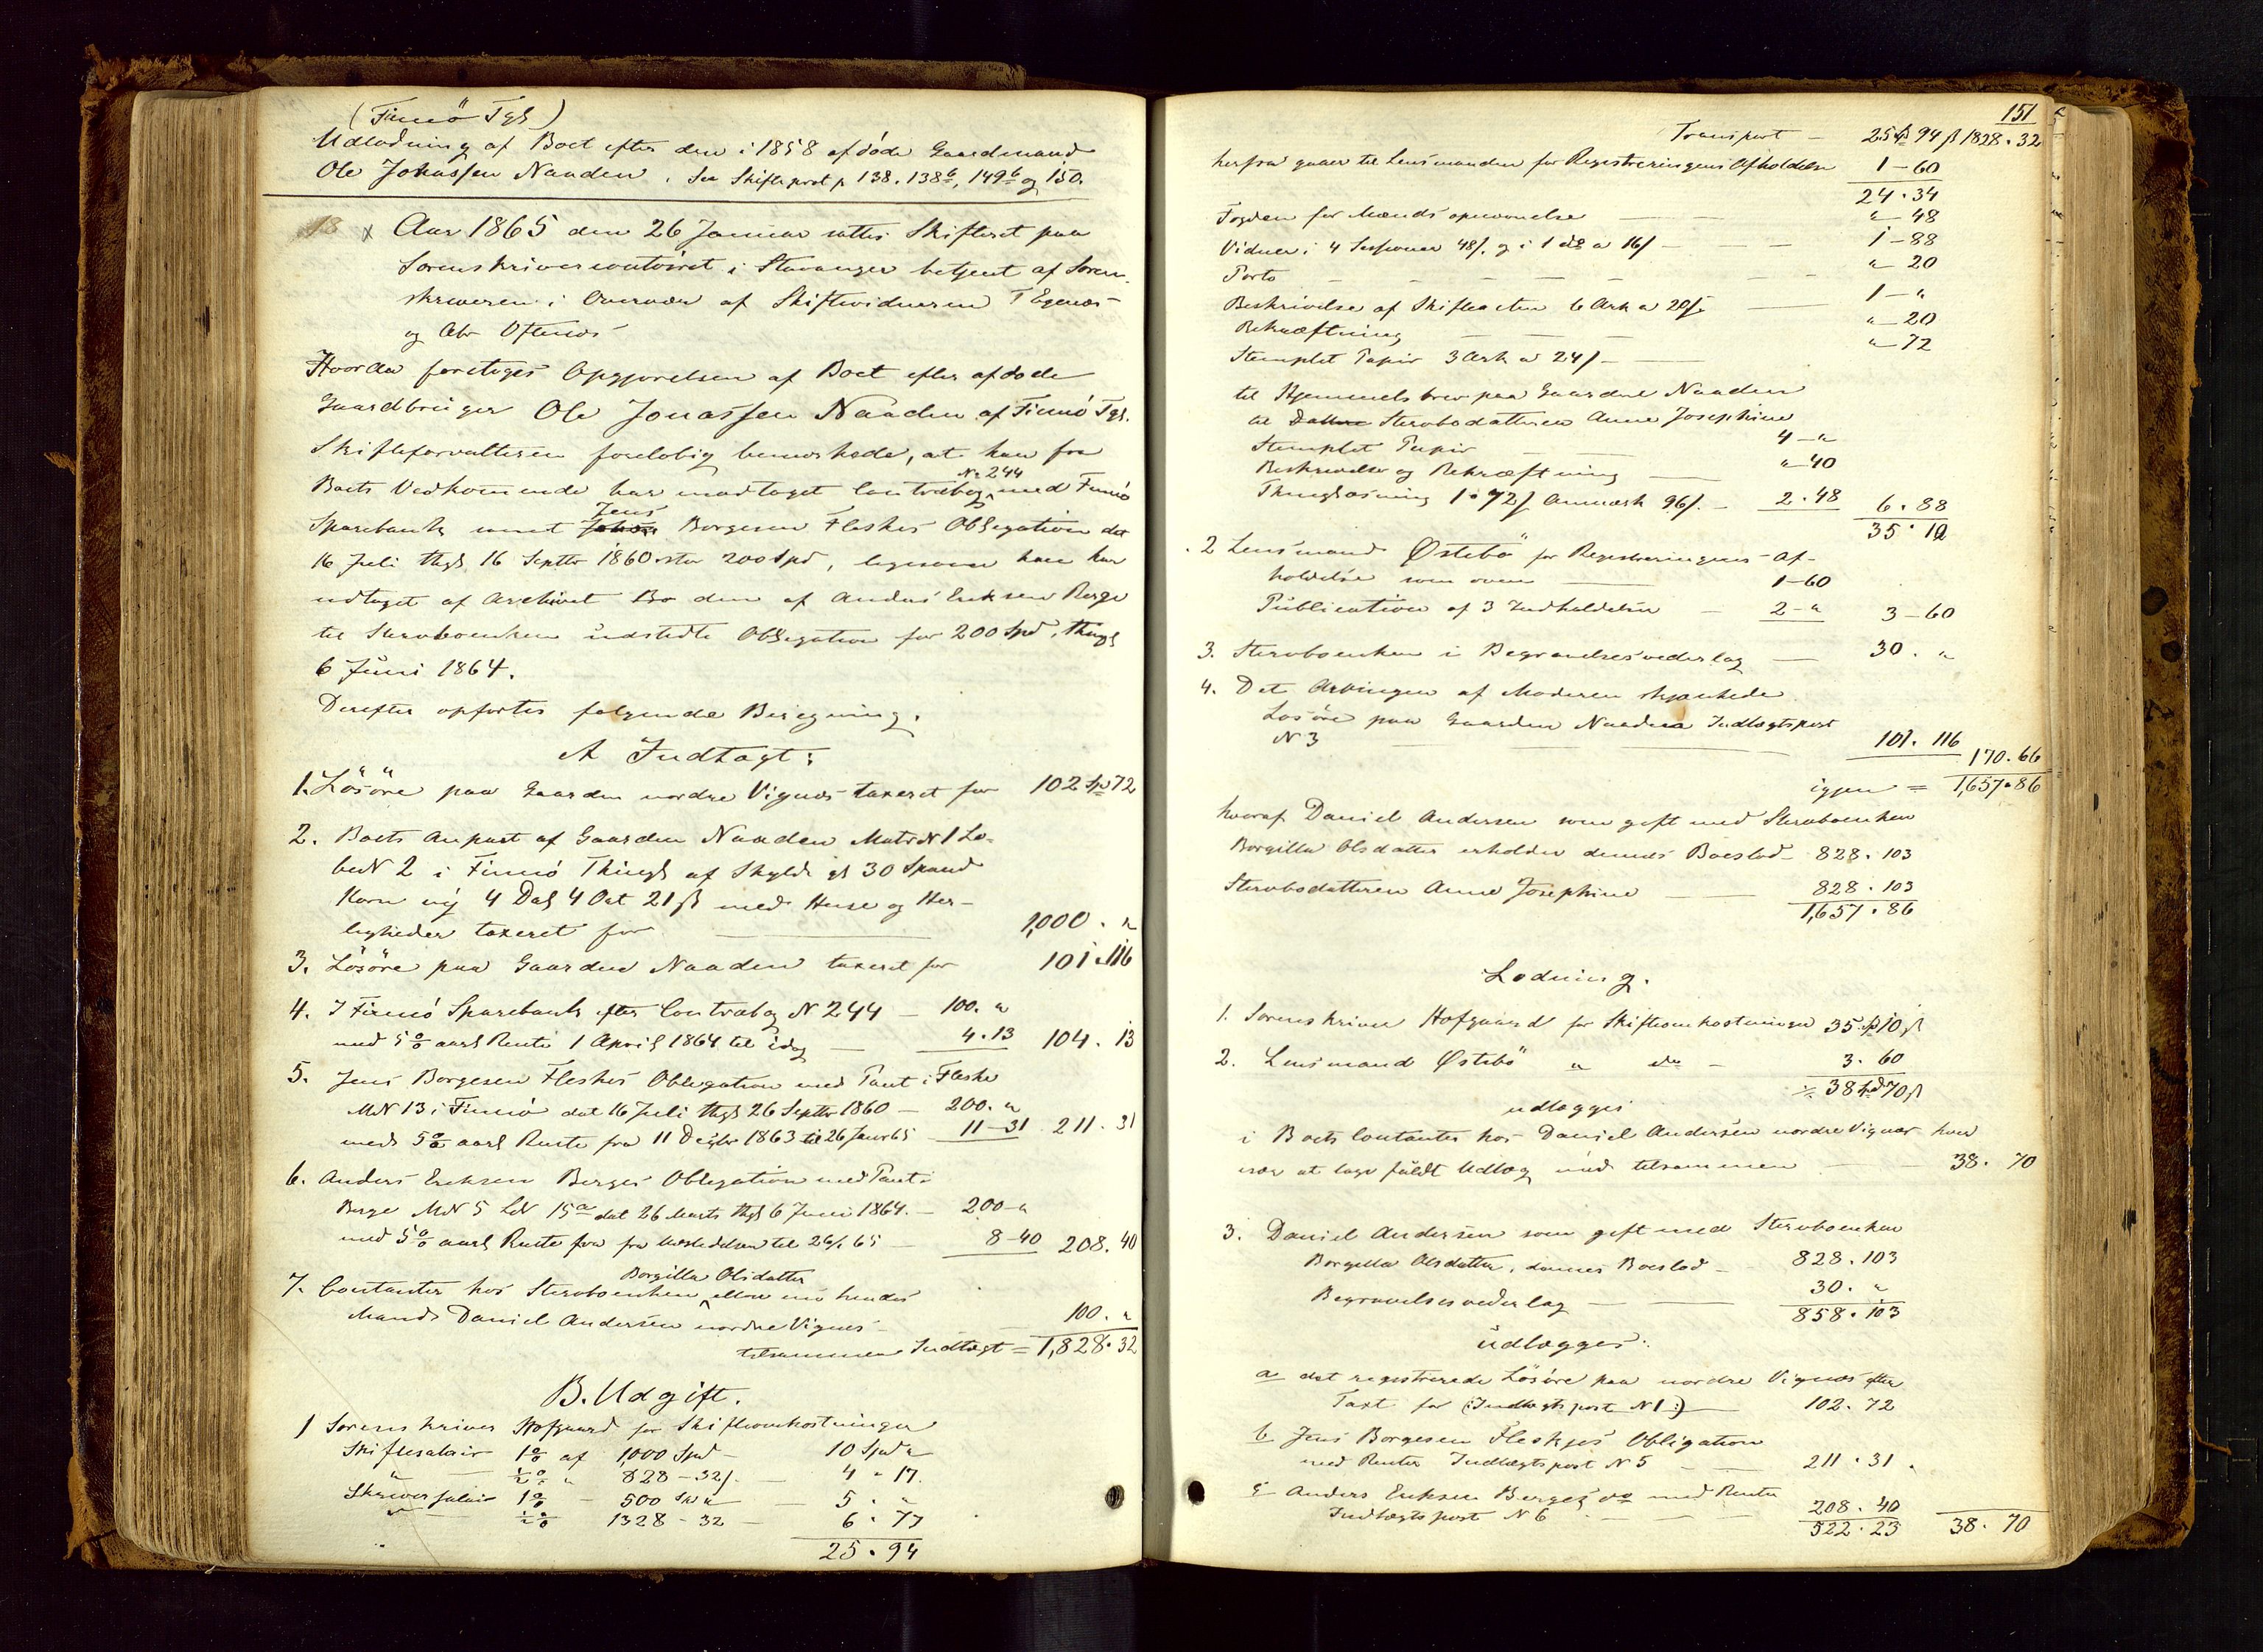 (Finnö Tgl)
Udlodning af Boet efter den i 1858 afdöde Gaardmand
Ole Johnassen Naaden. See Skifteprot p 138. 138b, 149b og 150.
18 x Aar 1865 den 26 Januar sattes Skifteret paa
Sorenskrivercontoiret i Stavanger betjent af Soren-
skriveren i Overvær af Skiftevidnerne T Egenæs
og Abr Oftenæs
Hvorda foretoges Opgjorelsen af Boet efter afdøde
Gaardbruger Ole Jonassen Naaden af Finnö Tgl.
Skifteforvalteren foreløbig bemærkede, at han for
Boets Vedkommende har modtaget Contrabog No 244 med Finnö
Sparebank samt Jens Borgesen Fleskes Obligation dat
16 Juli thgl 16 Septbr 1860 stor 200 Spd, ligesom han har
udtaget af Archivet Bo den af Anders Eriksen Berge
til Stervboenken udstedte Obligation for 200 Spd, thingl
6 Juni 1864.
Derefter opfortes følgende Beregning.
A Indtægt:
1. Lösöre paa Gaarden nordre Vignæs taxeret for 102 Spd 72
2. Boets Anpart af Gaarden Naaden Matr N 1 Lö-
be N 2 i Finnö Thingl af Skyld gl 30 Spand
Korn ny 4 Dal 4 Ort 21 ß med Huse og Her-
ligheder taxeret for 1,000 . "
3. Lösöre paa Gaarden Naaden taxeret for 101. 116
4. I Finnö Sparebank efter Contrabog N 244 — 100. "
med 5 % aarl Rente 1 April 1864 til idag — 4. 13 104. 13
5. Jens Borgesen Fleskes Obligation med Pant i Fleske
MN 13 i Finnö dat 16 Juli thgl 26 Septbr 1860 — 200. "
med 5 % aarl Rente fra 11 Decbr 1863 til 26 Januar 65 11—31 211. 31
6. Anders Eriksen Berges Obligation med Pant i
Berge MN 5 LN 15a dat 26 Marts thgl 6 Juni 1864. — 200 - "
med 5 % aarl Rente fra fra Udstedelsen til 26/1 65 — 8-40 208. 40
7. Contanter hos Stervboenken Borgilla Olsdatter eller nu hendes
Mand Daniel Andersen nordre Vignes — 100. "
tilsammen Indtægt = 1,828. 32
B. Udgift.
1 Sorenskriver Hofgaard for Skifteomkostninger
Skiftesalair 1 % af 1,000 Spd — 10 Spd "
" — ½ % " 828 - 32 ß. — 4 " 17.
Skriversalair 1 % — 500 Spd " — 5 . "
" — ½ % 1328 - 32 — 6 . 77
25. 94
151
Transport — 25 Spd 94 ß 1828. 32
herfra gaaer til Lensmanden for Registreringens Afholdelse 1—60
24. 34
Fogden for Mænds opnævnelse — " 48
Vidner i 4 Sessioner 48 ß. og i 1 do a 16 ß — 1—88
Porto — "—20
Beskrivelse af Skifteacten 6 Ark a 20 ß — 1—"
Bekræftning — "—20
Stemplet Papir 3 Ark a 24 ß — "—72
til Hjemmelsbrev paa Gaarden Naaden
til Datteren Stervbodatteren Anne Josephine
Stemplet Papir — 4—"
Beskrivelse og Bekræftning — "—40
Thinglæsning 1. 72 ß Anmærk 96 ß. — 2. 48 6. 88
35. 10
2 Lensmand Østebö for Registreringens af-
holdelse som oven — 1-60
Publication af 3 Indkaldelser — 2—" 3—60
3. Stervboenken i Begravelsesvederlag — 30. "
4. Det Arvingen af Moderen skjænkede
Lösöre paa Gaarden Naaden Indtægtspost
N 3 — 101. 116 170. 66
igjen = 1,657. 86
hvoraf Daniel Andersen som gift med Stervboenken
Borgilla Olsdatter erholder dennes Boeslod — 828. 103
Stervbodatteren Anne Josephine — 828. 103
1,657. 86
Lodning.
1. Sorenskriver Hofgaard for Skifteomkostninger 35 Spd 10 ß
2. Lensmand Østebö " do — 3. 60
38 Spd 70 ß
udlægges
i Boets Contanter hos Daniel Andersen nordre Vignær hver
især at tage fuldt Udlæg med tilsammen — 38. 70
3. Daniel Andersen som gift med Stervboenken
Borgilla Olsdatter, dennes Boeslod — 828. 103
Begravelsesvederlag — 30. "
858. 103
udlægges:
a det registrerede Lösöre paa nordre Vignæs efter
Taxt for (Indtægtspost N 1:) — 102. 72
b Jens Borgesen Fleskes Obligation
med Renter Indtægtspost N 5 — 211. 31.
c Anders Eriksen Berges do med Renter
Indtægtspost N 6 — 208. 40
522. 23 38. 70